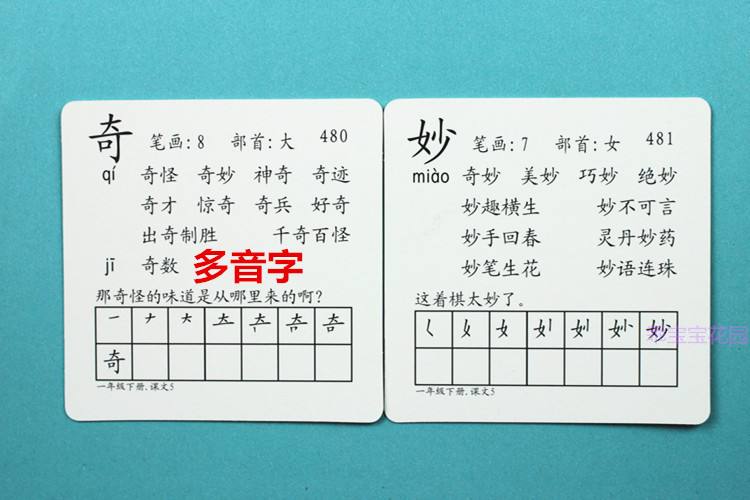 奇 笔画:8 部首:大 480
qí 奇怪 奇妙 神奇 奇迹
奇才 惊奇 奇兵 好奇
出奇制胜 千奇百怪
jī 奇数 多音字
那奇怪的味道是从哪里来的啊?
奇
一年级下册,课文5
妙 笔画:7 部首:女 481
miào 奇妙 美妙 巧妙 绝妙
妙趣横生 妙不可言
妙手回春 灵丹妙药
妙笔生花 妙语连珠
这着棋太妙了。
妙
一年级下册,课文5
宝宝花园